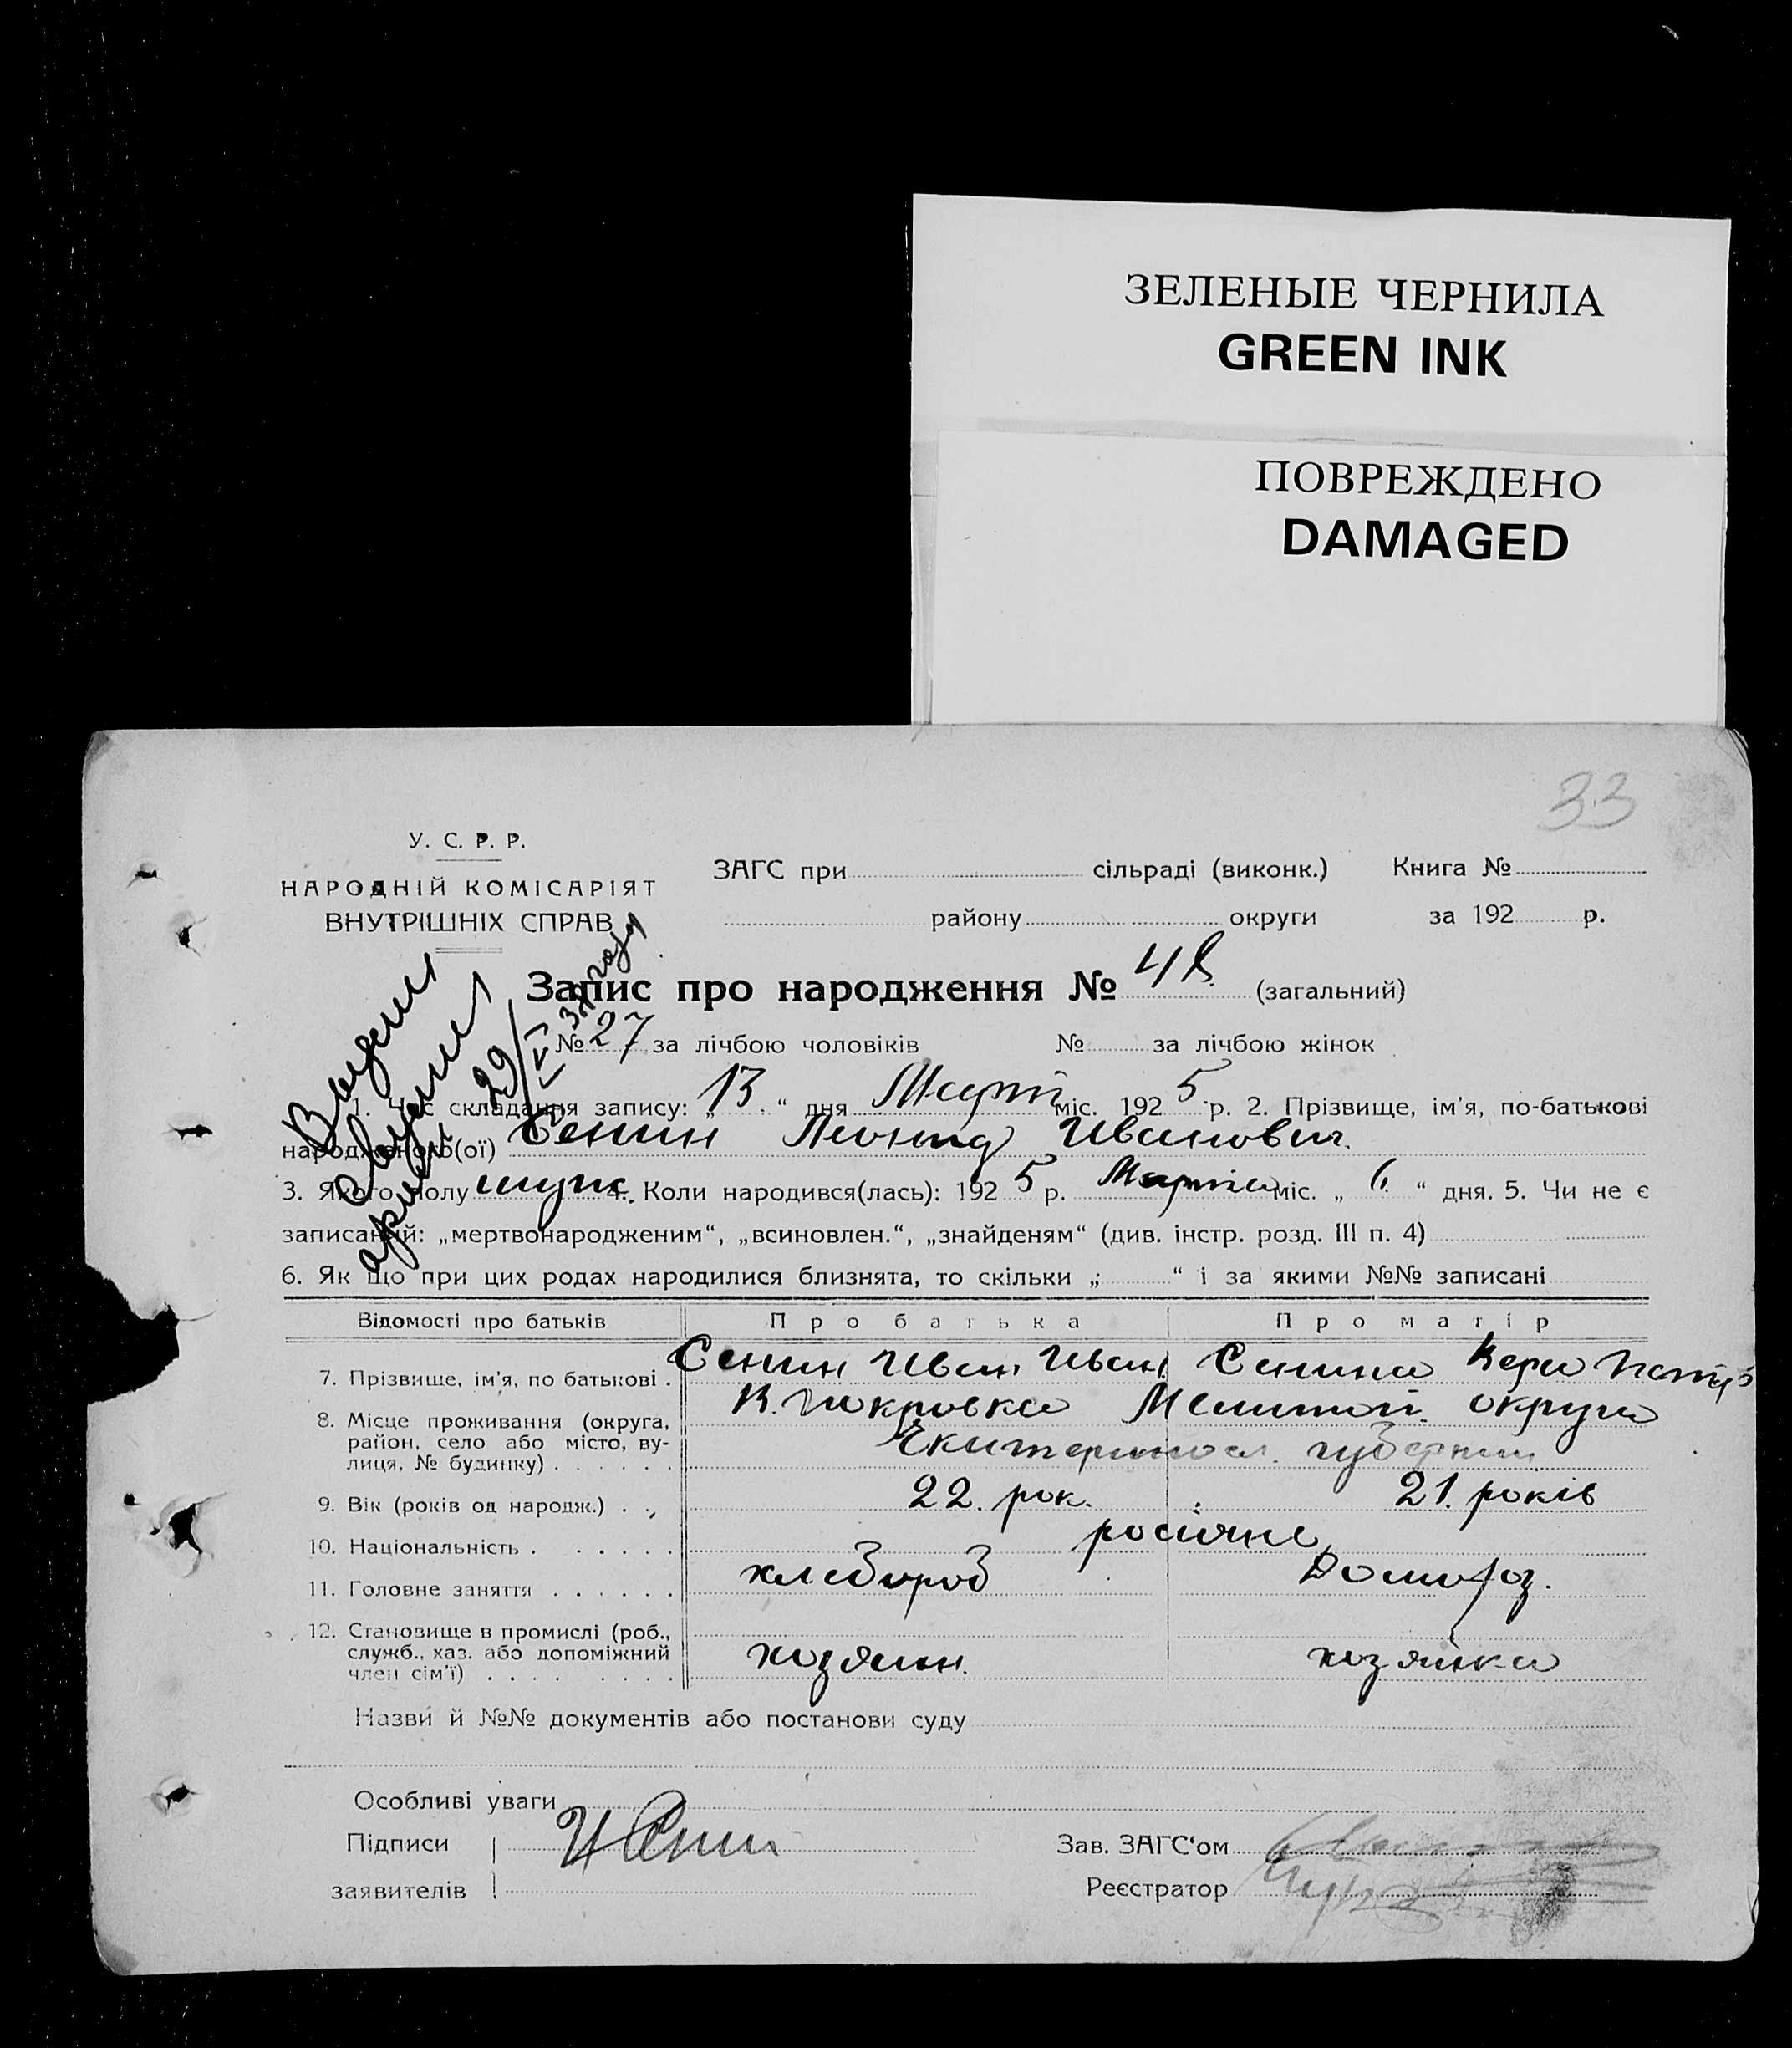 ЗЕЛЕНЫЕ ЧЕРНИЛА
GREEN INK
ПОВРЕЖДЕНО
DAMAGED
33
У. С. Р. Р.
НАРОДНІЙ КОМІСАРІЯТ
ВНУТРІШНІХ СПРАВ
ЗАГС при сільраді (виконк.) Книга №
району округи за 192 р.
Запис про народження № 48 (загальний)
№ 27 за лічбою чоловіків № за лічбою жінок
1. Час складання запису: „ 13 “ дня Март міс. 192 5 р. 2. Прізвище, ім'я, по-батькові
народженого(ої) Сенин Леонид Иванович
3. Якого полу муж. 4. Коли народився(лась): 192 5 р. Марта міс. „ 6. “ дня. 5. Чи не є
записаний: „мертвонародженим“, „всиновлен.“, „знайденям“ (див. інстр. розд. III п. 4)
6. Як що при цих родах народилися близнята, то скільки „ “ і за якими №№ записані
Відомості про батьків Про батька Про матір
7. Прізвище, ім'я, по батькові . Сенин Иван Иван Сенина Вера Петр
8. Місце проживання (округа, В. Покровка Мелитоп. округа
район, село або місто, ву-
лиця, № будинку) . . . . . . Екатериносл. губернии
9. Вік (років од народж.) . . 22. рок. 21. років
10. Національність . . . . . . росіяне
11. Головне заняття . . . . . . хлебороб Домохоз.
12. Становище в промислі (роб.,
служб., хаз. або допоміжний хозяин. хозяйка
член сім'ї) . . . . . . . . .
Назви й №№ документів або постанови суду
Особливі уваги
Підписи И Сенин Зав. ЗАГС‘ом
заявителів Реєстратор